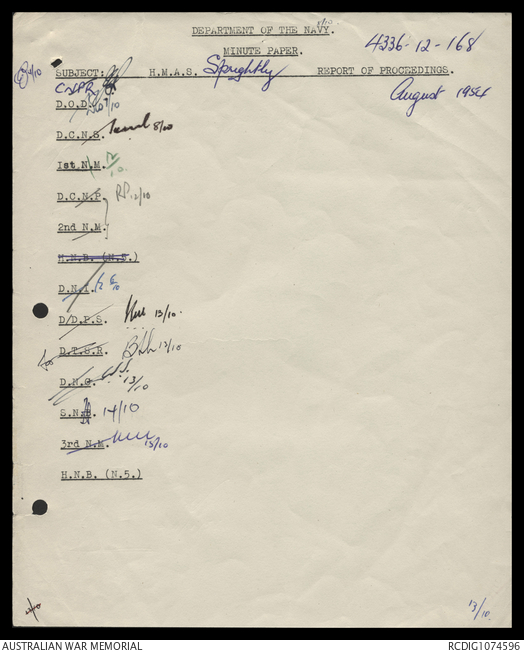 DEPARTMENT OF THE NAVY.
MINUTE PAPER.
4336-12-168
SUBJECT: H.M.A.S. Sprightly REPORT OF PROCEEDINGS.
August 1954
CNPR
D.O.D. /10
D.C.N.S. 8/10
1st N.M.
D.C.N.P. 12/10
2nd N.M.
H.N.B. (N.S.)
D.N.I.
D/D.P.S. 13/10.
D.T.S.R. 13/10
D.H.O. 13/10
S.N.B. 14/10
3rd N.M. 15/10
H.N.B. (N.5.)
13/10.
AUSTRALIAN WAR MEMORIAL RCDIG1074596